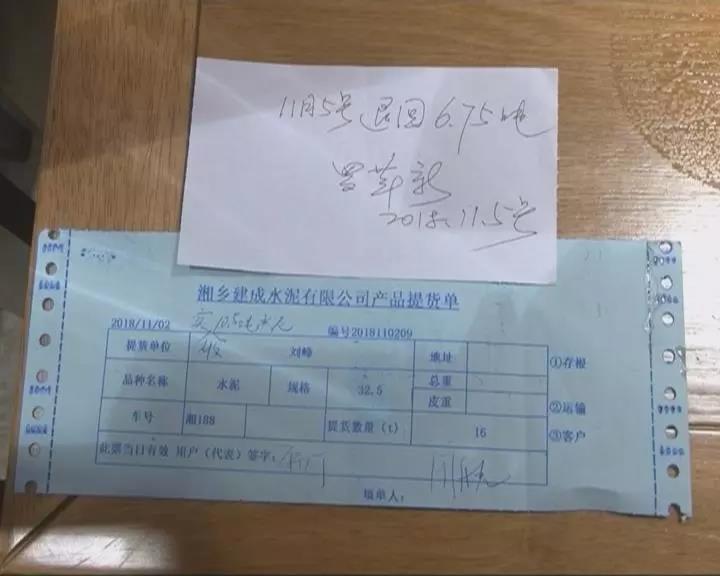 11月5号退回6.75吨
2018.11.5号
湘乡建成水泥有限公司产品提货单
2018/11/02 实 10.5吨 编号2018110209
提货单位 收 刘峰 地址
品种名称 水泥 规格 32.5 总重
皮重
车号 湘188 提货数量(t) 16
此票当日有效 用户(代表)签字:
填单人:
①存根
②运输
③客户